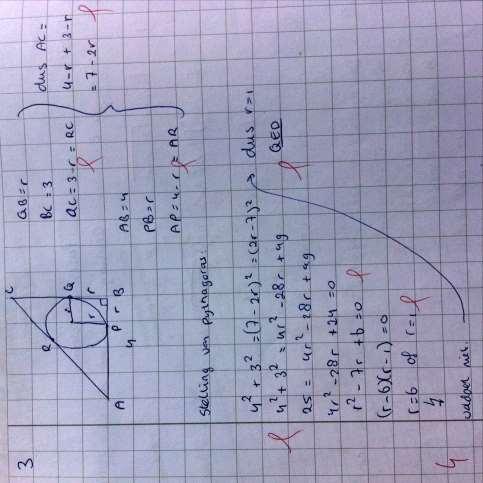 3
C
R
Q
r
r
r
A
4
P
B
QB = r
BC = 3
QC = 3 - r = RC
AB = 4
PB = r
AP = 4 - r = AR
dus AC =
4 - r + 3 - r
= 7 - 2r
Stelling van pythagoras:
4² + 3² = (7 - 2r)² = (2r - 7)²
4² + 3² = 4r² - 28r + 49
25 = 4r² - 28r + 49
4r² - 28r + 24 = 0
r² - 7r + 6 = 0
(r - 6)(r - 1) = 0
r = 6 of r = 1
voldoet niet
→ dus r = 1
QED
4